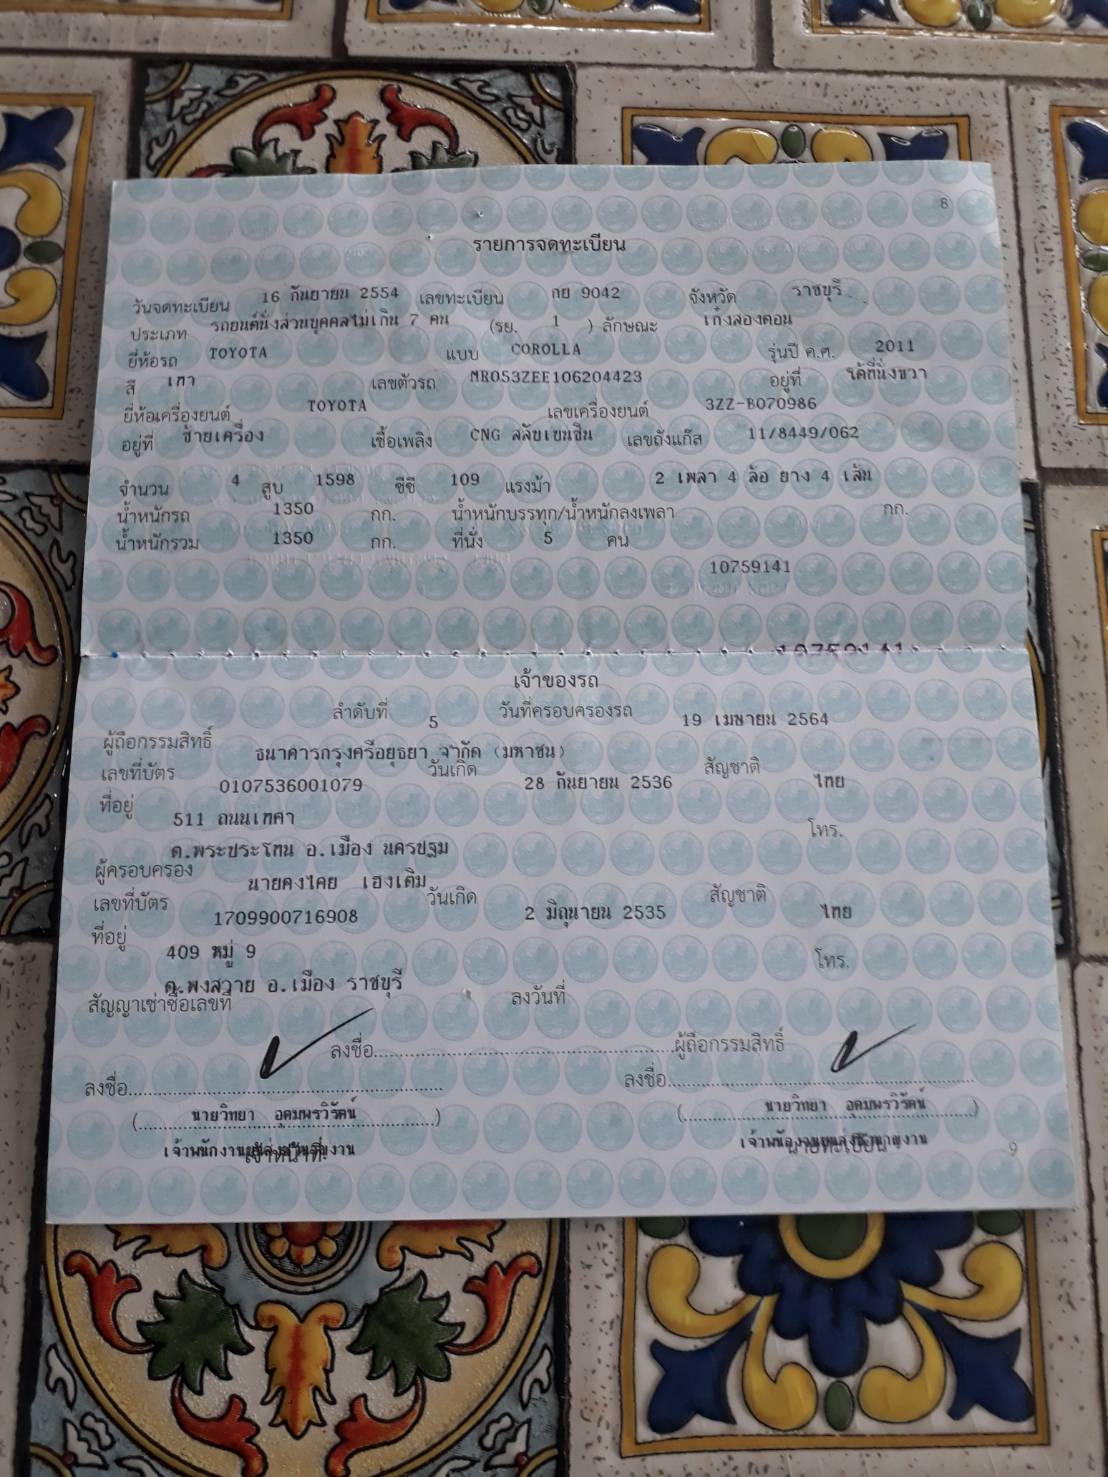 8
รายการจดทะเบียน
วันจดทะเบียน 16 กันยายน 2554 เลขทะเบียน กย 9042 จังหวัด ราชบุรี
ประเภท รถยนต์นั่งส่วนบุคคลไม่เกิน 7 คน (รย. 1 ) ลักษณะ เก๋งสองตอน
ยี่ห้อรถ TOYOTA แบบ COROLLA รุ่นปี ค.ศ. 2011
สี เทา เลขตัวรถ MR053ZEE106204423 อยู่ที่ ใต้ที่นั่งขวา
ยี่ห้อเครื่องยนต์ TOYOTA เลขเครื่องยนต์ 3ZZ-B070986
อยู่ที่ ซ้ายเครื่อง เชื้อเพลิง CNG สลับเบนซิน เลขถังแก๊ส 11/8449/062
จำนวน 4 สูบ 1598 ซีซี 109 แรงม้า 2 เพลา 4 ล้อ ยาง 4 เส้น
น้ำหนักรถ 1350 กก. น้ำหนักบรรทุก/น้ำหนักลงเพลา กก.
น้ำหนักรวม 1350 กก. ที่นั่ง 5 คน
10759141
เจ้าของรถ
ลำดับที่ 5 วันที่ครอบครองรถ 19 เมษายน 2564
ผู้ถือกรรมสิทธิ์ ธนาคารกรุงศรีอยุธยา จำกัด (มหาชน)
เลขที่บัตร 0107536001079 วันเกิด 28 กันยายน 2536 สัญชาติ ไทย
ที่อยู่ 511 ถนนเทศา โทร.
ต.พระประโทน อ.เมือง นครปฐม
ผู้ครอบครอง นายคงไคย เฮงเติม
เลขที่บัตร 1709900716908 วันเกิด 2 มิถุนายน 2535 สัญชาติ ไทย
ที่อยู่ 409 หมู่ 9 โทร.
ต.พงสวาย อ.เมือง ราชบุรี
สัญญาเช่าซื้อเลขที่ ลงวันที่
ลงชื่อ ผู้ถือกรรมสิทธิ์
ลงชื่อ ลงชื่อ
(นายวิทยา อุดมพรวิรัตน์) (นายวิทยา อุดมพรวิรัตน์)
9